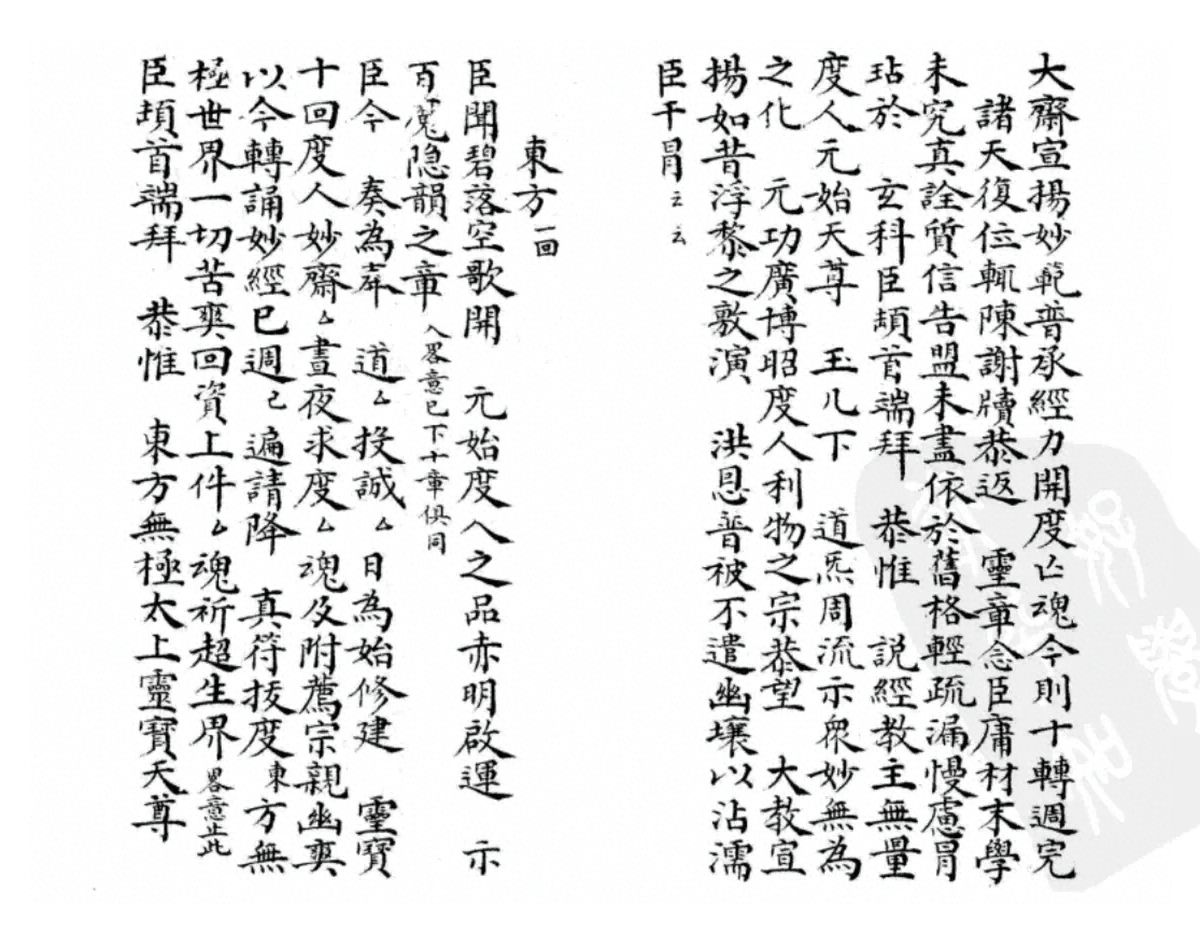 大齋宣揚妙範普承經力開度亡魂今則十轉週完
諸天復位輒陳謝牘恭返　靈章念臣庸材末學
未究真詮質信告盟未盡依於舊格輕疏漏慢慮冒
玷於　玄科臣頓首端拜　恭惟　説經教主無量
度人元始天尊　玉几下　道炁周流示衆妙無為
之化　元功廣博昭度人利物之宗恭望　大教宣
揚如昔浮黎之敷演　洪恩普被不遺幽壤以沾濡
臣干冒云云
東方一回
臣聞碧落空歌開　元始度人之品赤明啟運　示
百魔隐韻之章入畧意已下十章俱同
臣今　奏為奉　道厶投誠厶日為始修建　靈寶
十回度人妙齋厶晝夜求度厶魂及附薦宗親幽爽
以今轉誦妙經已週己遍請降　真符拔度東方無
極世界一切苦爽回資上件厶魂祈超生界畧意止此
臣頓首端拜　恭惟　東方無極太上靈寶天尊